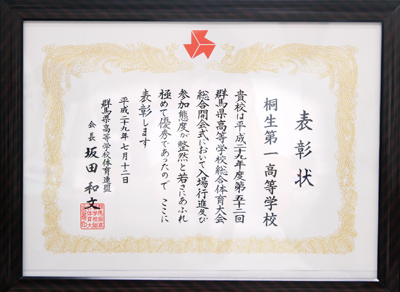 表彰状
桐生第一高等学校
貴校は平成二十九年度第五十二回
群馬県高等学校総合体育大会
総合開会式において入場行進及び
参加態度が整然と若さにあふれ
極めて優秀であったので ここに
表彰します
平成二十九年七月十二日
群馬県高等学校体育連盟
会長 坂田和文